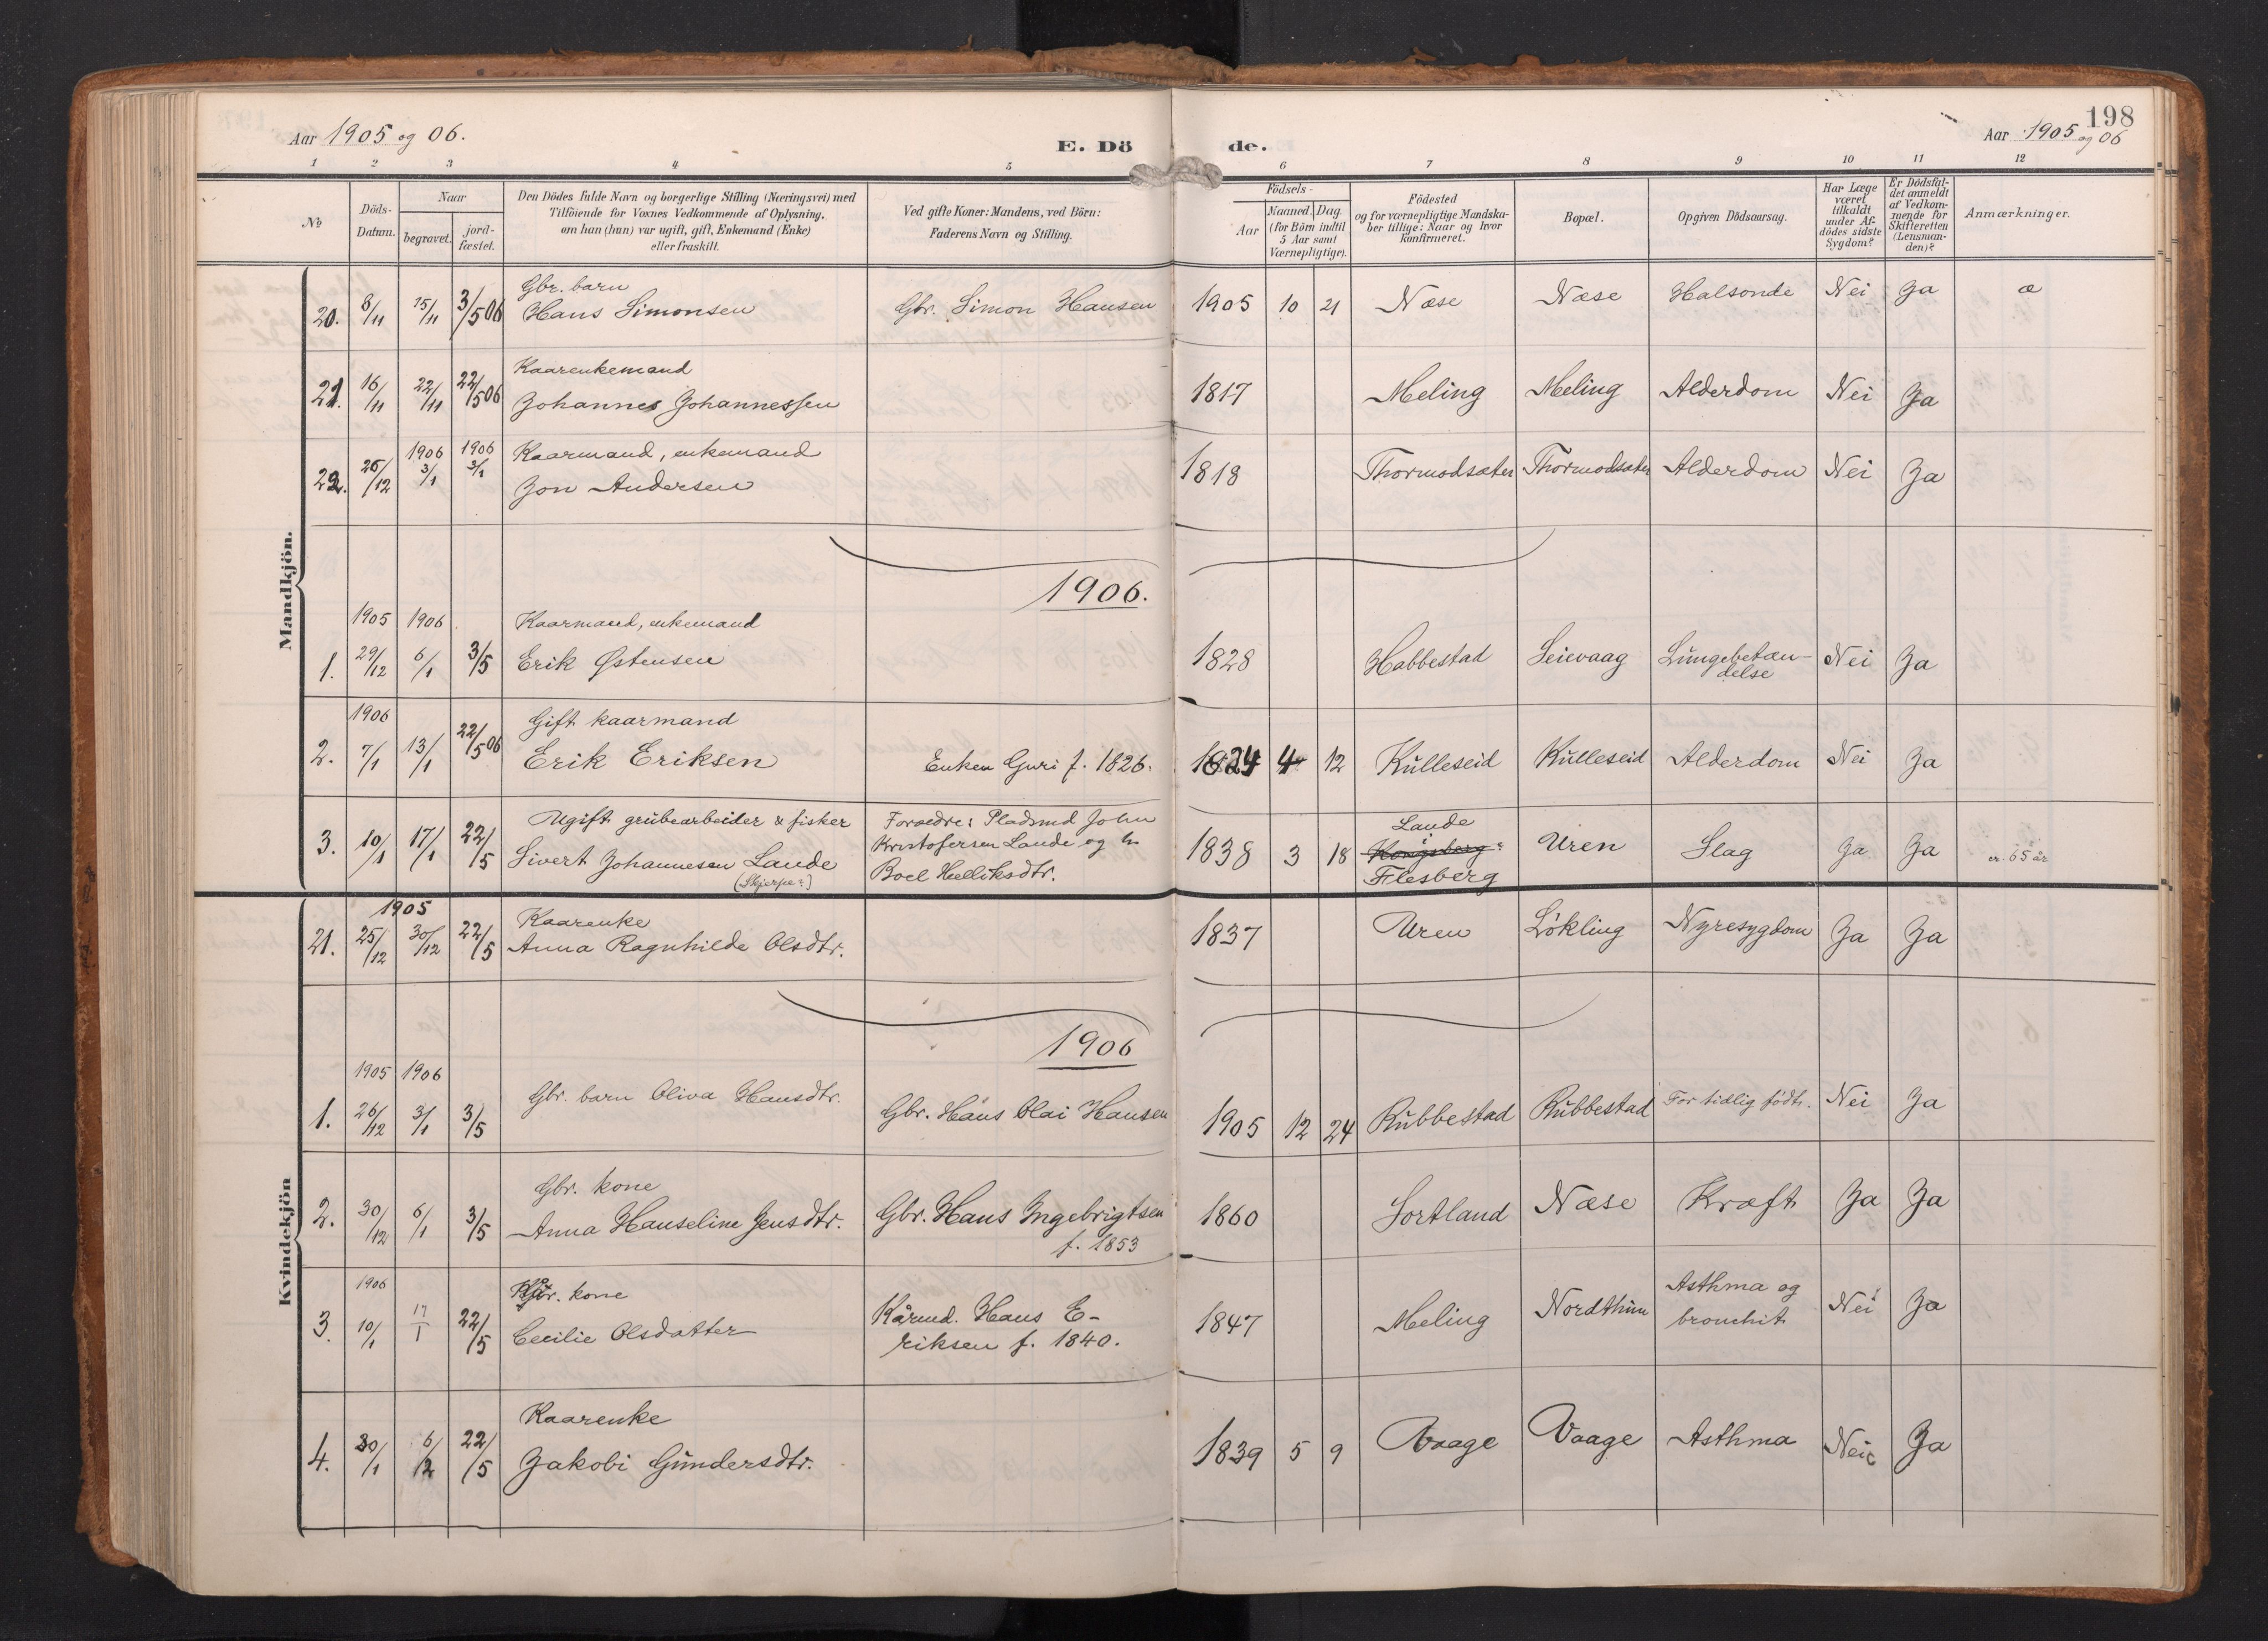 198
Aar 1905 og 06.
E. Dö de.
Aar 1905 og 06
1 2 3 4 5 6 7 8 9 10 11 12
No
Döds-Datum.
Naar
begravet.
jord-fæstet.
Den Dödes fulde Navn og borgerlige Stilling (Næringsvei) med
Tilföiende for Voxnes Vedkommende af Oplysning,
om han (hun) var ugift, gift, Enkemand (Enke)
eller fraskilt.
Ved gifte Koner: Mandens, ved Börn:
Faderens Navn og Stilling.
Födsels-
Aar
Maaned. Dag.
(for Börn indtil
5 Aar samt
Værnepligtige).
Födested
og for værnepligtige Mandska-
ber tillige: Naar og hvor
konfirmeret.
Bopæl.
Opgiven Dödsaarsag.
Har Læge
været
tilkaldt
under Af-
dödes sidste
Sygdom?
Er Dödsfal-
det anmeldt
af Vedkom-
mende for
Skifteretten
(Lensman-
den)?
Anmærkninger.
Mandkjön.
Gbr. barn
20. 8/11 15/11 3/5 06 Hans Simonsen Gbr. Simon Hansen 1905 10 21 Næse Næse Halsonde Nei Ja a
Kaarenkemand
21. 16/11 22/11 22/5 06 Johannes Johannessen 1817 Meling Meling Alderdom Nei Ja
1906 1906 Kaarmand, enkemand
22. 26/12 3/1 3/1 Jon Andersen 1818 Thormodsæter Thormodsæter Alderdom Nei Ja
1906.
1905 1906 Kaarmand, enkemand
1. 29/12 6/1 3/5 Erik Østensen 1828 Habbestad Seievaag Lungebetæn-
delse Nei Ja
1906 Gift kaarmand
2. 7/1 13/1 22/5 06 Erik Eriksen Enken Guri f. 1826. 1824 4 12 Kulleseid Kulleseid Alderdom Nei Ja
Ugift grubearbeider & fisker Forædre: Pladsmd John Lande
3. 10/1 17/1 22/5 Sivert Johannesen Lande Kristofersen Lande og h. 1838 3 18 Kongsberg? Uren Slag Ja Ja er. 65 år
(Skjerpe?) Boel Helliksdtr. Flesberg
Kvindekjön
1905 Kaarenke
21. 25/12 30/12 22/5 Anna Ragnhilde Olsdtr. 1837 Uren Løkling Nyresygdom Ja Ja
1906
1905 1906
1. 26/12 3/1 3/5 Gbr. barn Oliva Hansdtr. Gbr. Hans Olai Hansen 1905 12 24 Rubbestad Rubbestad For tidlig født. Nei Ja
Gbr. kone
2. 30/12 6/1 3/5 Anna Hanseline Jensdtr. Gbr. Hans Ingebrigtsen 1860 Sortland Næse Kræft Ja Ja
f. 1853
1906 kone Asthma og
3. 10/1 17/1 22/5 Cecilie Olsdatter Kårmd. Hans E- 1847 Meling Nordthun bronchit Nei Ja
riksen f. 1840.
Kaarenke
4. 30/1 6/2 22/5 Jakobi Gundersdtr. 1839 5 9 Vaage Vaage Asthma Nei Ja